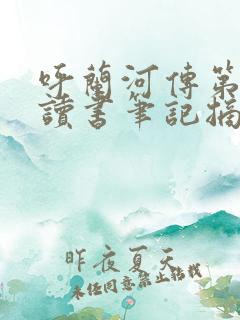 呼蘭河傳第
讀書筆記摘
昨夜夏天
未经同意禁止转载